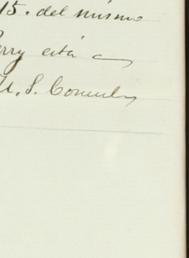 15. del mismo
rry está a
U. S. Consul